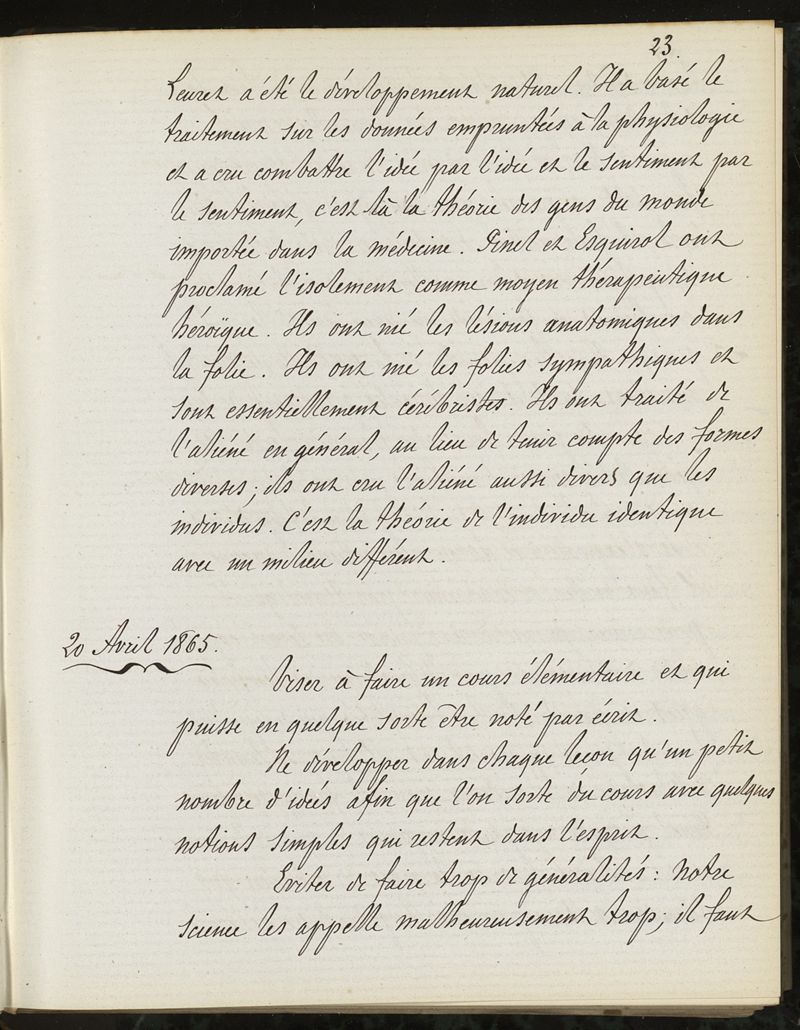 23
Leuret a été le développement naturel. Il a basé le
traitement sur les données empruntées à la physiologie
et a cru combattre l'idée par l'idée et le sentiment par
le sentiment, c'est là la théorie des gens du monde
importée dans la médecine. Pinel et Esquirol ont
proclamé l'isolement comme moyen thérapeutique
héroïque. Ils ont nié les lésions anatomiques dans
la folie. Ils ont nié les folies sympathiques et
sont essentiellement cérébristes. Ils ont traité de
l'aliéné en général, au lieu de tenir compte des formes
diverses; ils ont cru l'aliéné aussi divers que les
individus. C'est la théorie de l'individu identique
avec un milieu différent.
20 Avril 1865.
Viser à faire un cours élémentaire et qui
puisse en quelque sorte être noté par écrit.
Ne développer dans chaque leçon qu'un petit
nombre d'idées afin que l'on sorte du cours avec quelques
notions simples qui restent dans l'esprit.
Eviter de faire trop de généralités: notre
science les appelle malheureusement trop; il faut